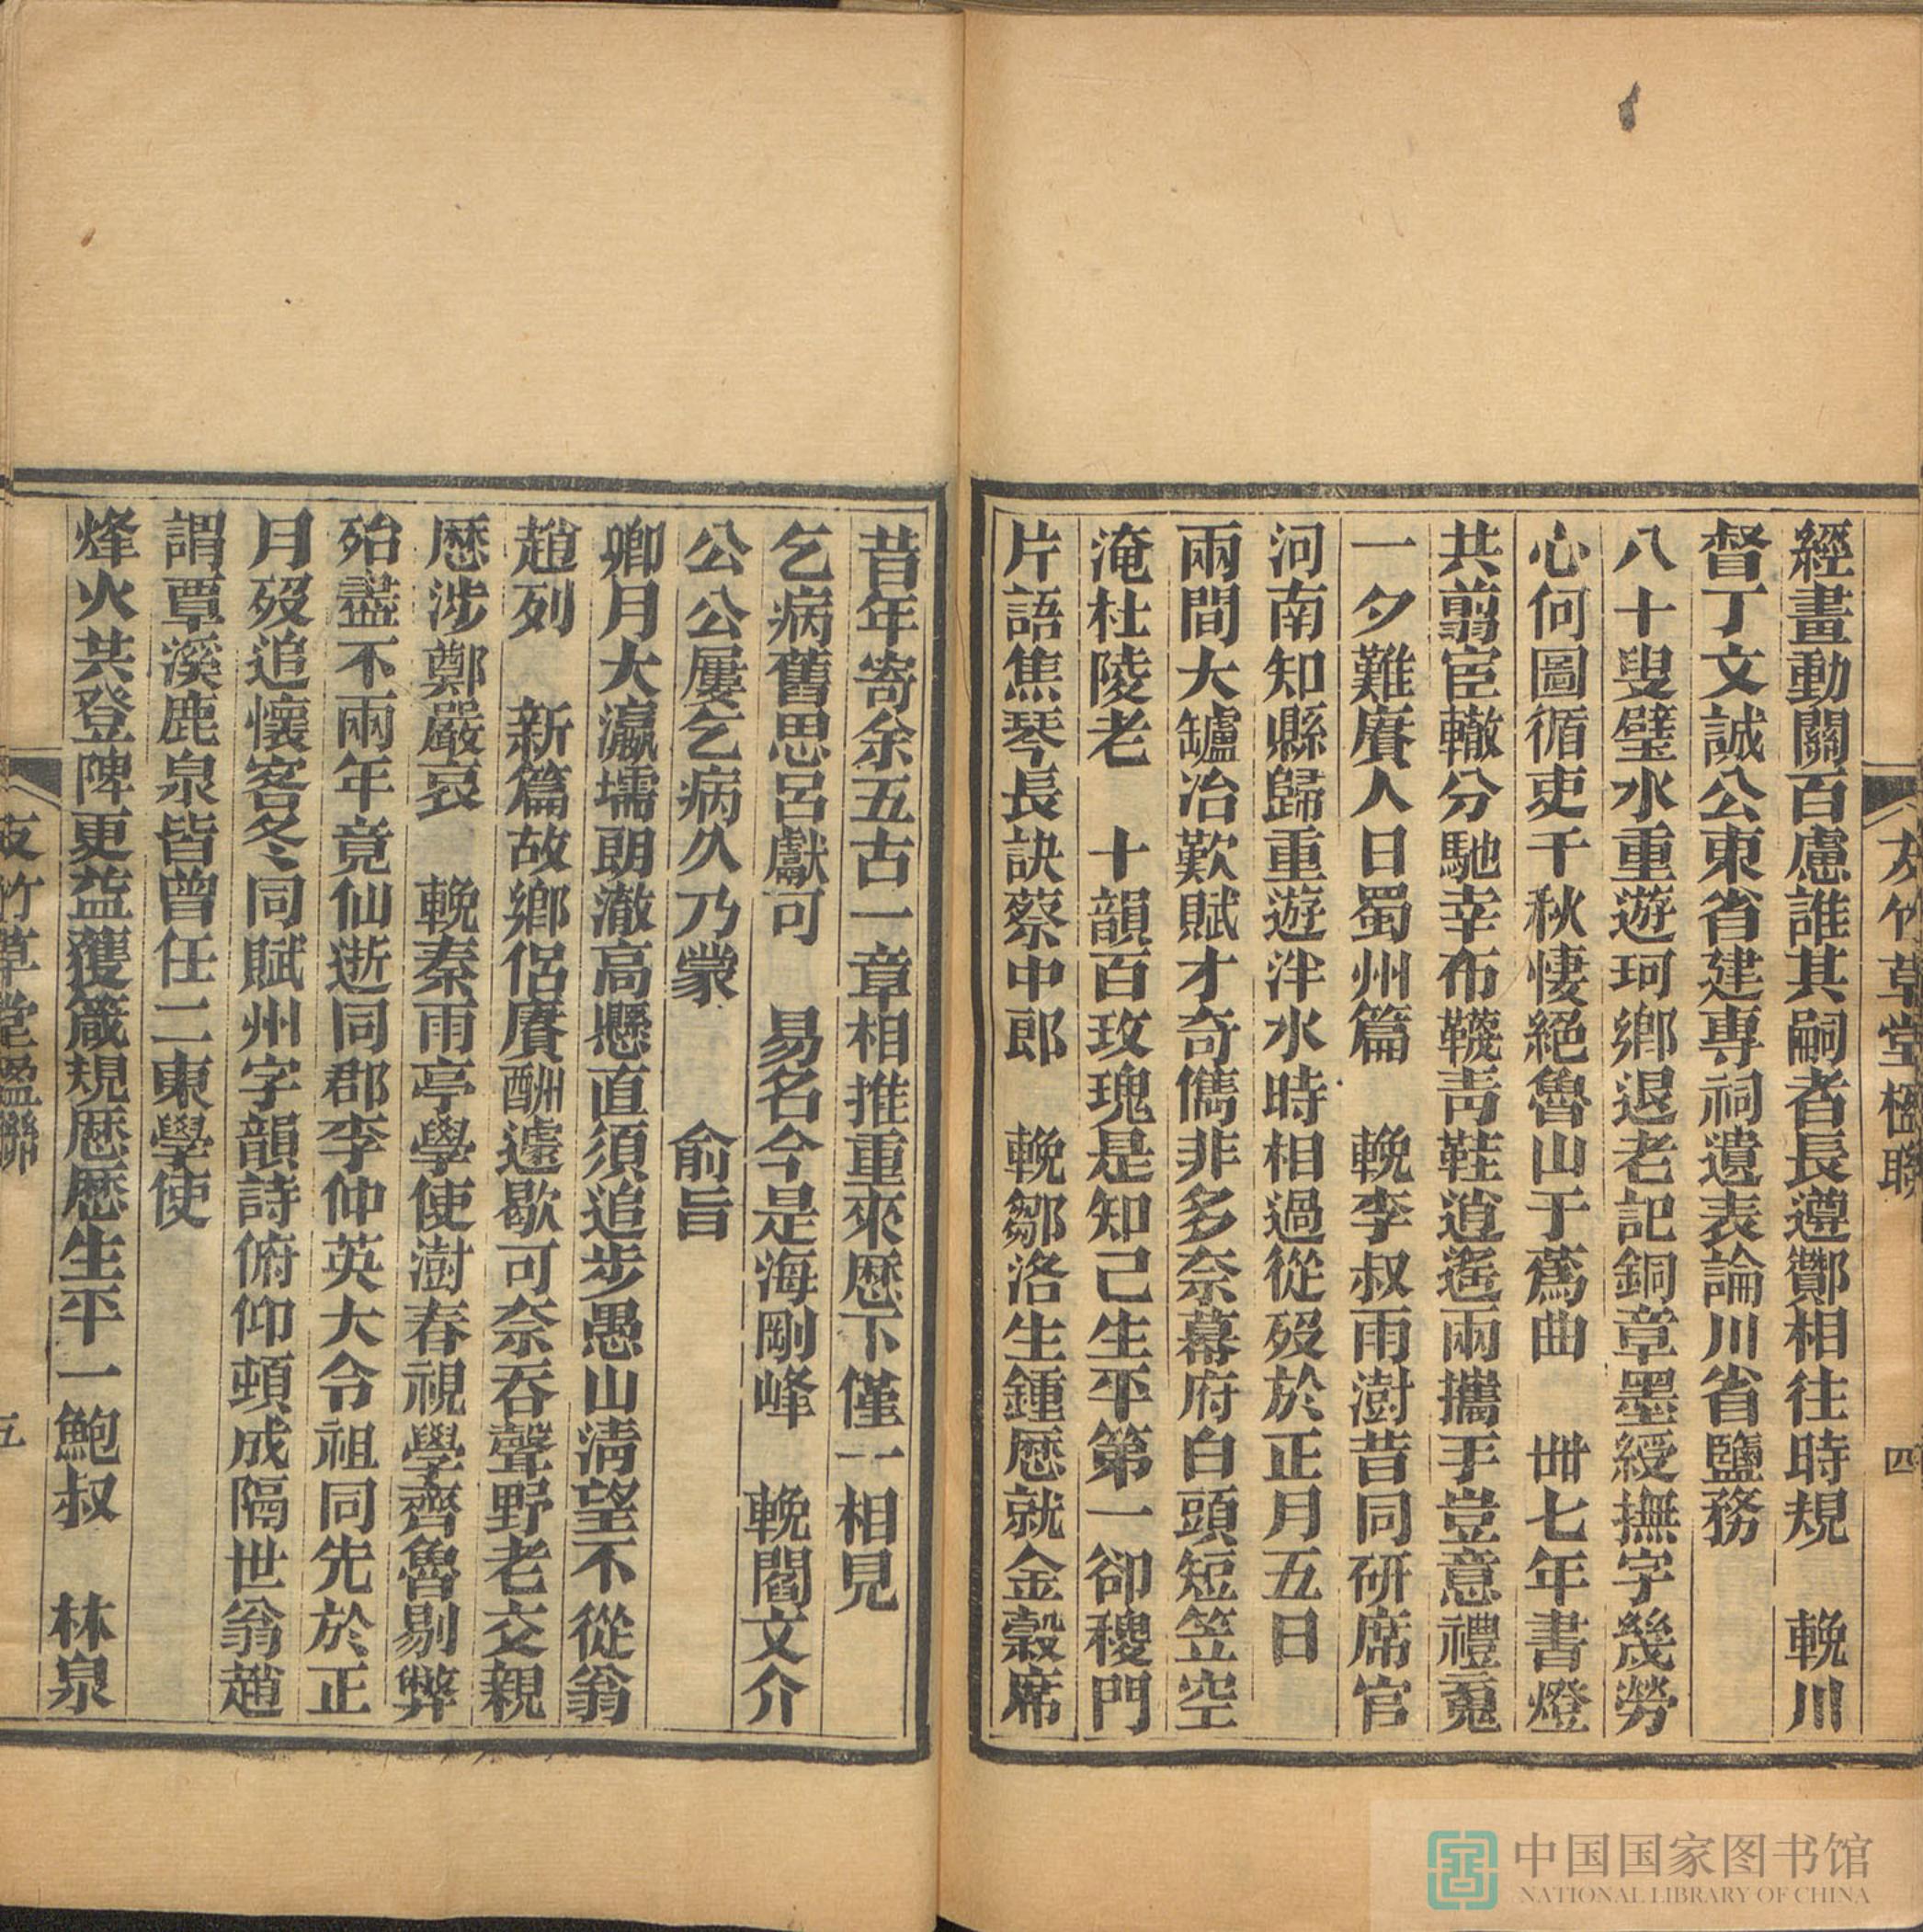 友竹草堂楹聯
四
經畫動關百慮誰其嗣者長遵酇相往時規　輓川
督丁文誠公東省建專祠遺表論川省鹽務
八十叟璧水重遊珂鄉退老記銅章墨綬撫字幾勞
心何圖循吏千秋悽絕魯山于蔿曲　卌七年書燈
共翦宦轍分馳幸布韈靑鞋逍遙兩攜手豈意禮䰟
一夕難賡人日蜀州篇　輓李叔雨澍昔同研席官
河南知縣歸重遊泮水時相過從歿於正月五日
兩間大罏冶歎賦才奇儁非多奈幕府白頭短笠空
淹杜陵老　十韻百玫瑰是知己生平第一卻稷門
片語焦琴長訣蔡中郎　輓鄒洛生鍾歷就金穀席
昔年寄余五古一章相推重來歷下僅一相見
乞病舊思呂獻可　易名今是海剛峰　輓閻文介
公公屢乞病久乃蒙　俞旨
卿月大瀛壖朗澈高懸直須追步愚山淸望不從翁
趙列　新篇故鄉侶賡酬遽歇可奈吞聲野老交親
歷涉鄭嚴哀　輓秦雨亭學使澍春視學齊魯剔弊
殆盡不兩年竟仙逝同郡李仲英大令祖同先於正
月歿追懷客冬同賦州字韻詩俯仰頓成隔世翁趙
謂覃溪鹿泉皆曾任二東學使
烽火共登陴更益獲箴規歷歷生平一鮑叔　林泉
友竹草堂楹聯
五
中国国家图书馆
NATIONAL LIBRARY OF CHINA